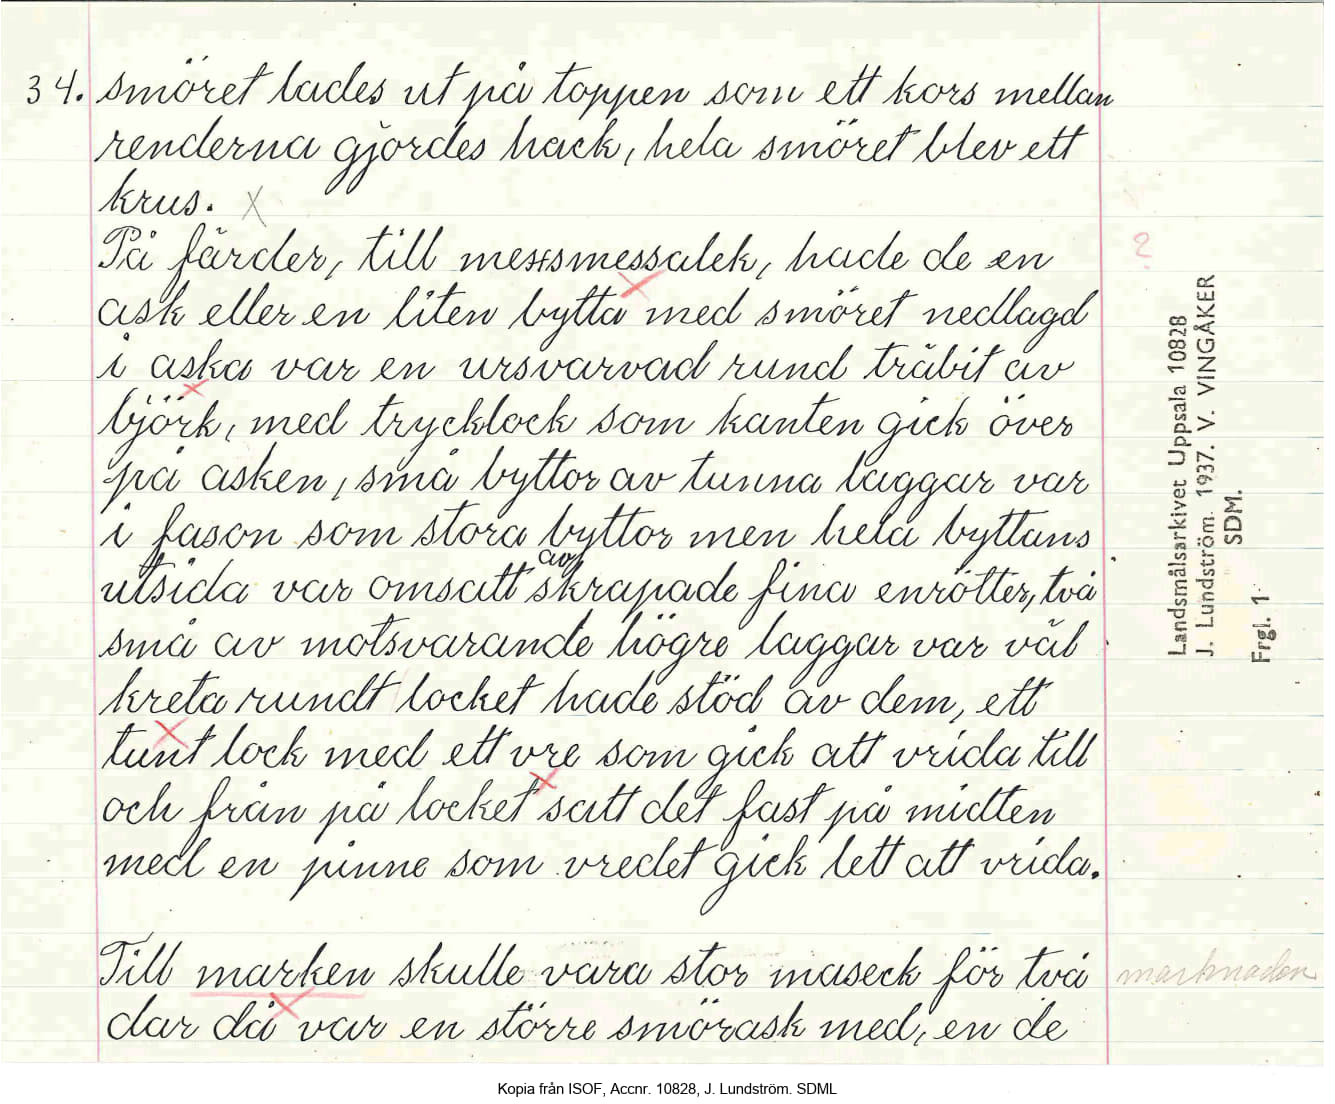 34. smöret lades ut på toppen som ett kors mellan
renderna gjordes hack, hela smöret blev ett
krus. X
På färder, till messmessalek, hade de en
?
ask eller en liten bytta med smöret nedlagd
i aska var en ursvarvad rund träbit av
björk, med trycklock som kanten gick över
på asken, små byttor av tunna laggar var
i fason som stora byttor men hela byttans
utsida var omsatt av skrapade fina enrötter, två
små av motsvarande högre laggar var väl
kreta rundt locket hade stöd av dem, ett
tunt lock med ett vre som gick att vrida till
och från på locket satt det fast på midten
med en pinne som vredet gick lett att vrida.
Till marken skulle vara stor maseck för två
marknaden
dar då var en större smörask med, en de
Landsmålsarkivet Uppsala 10828
J. Lundström. 1937. V. VINGÅKER
SDM.
Frgl. 1
Kopia från ISOF, Accnr. 10828, J. Lundström. SDML